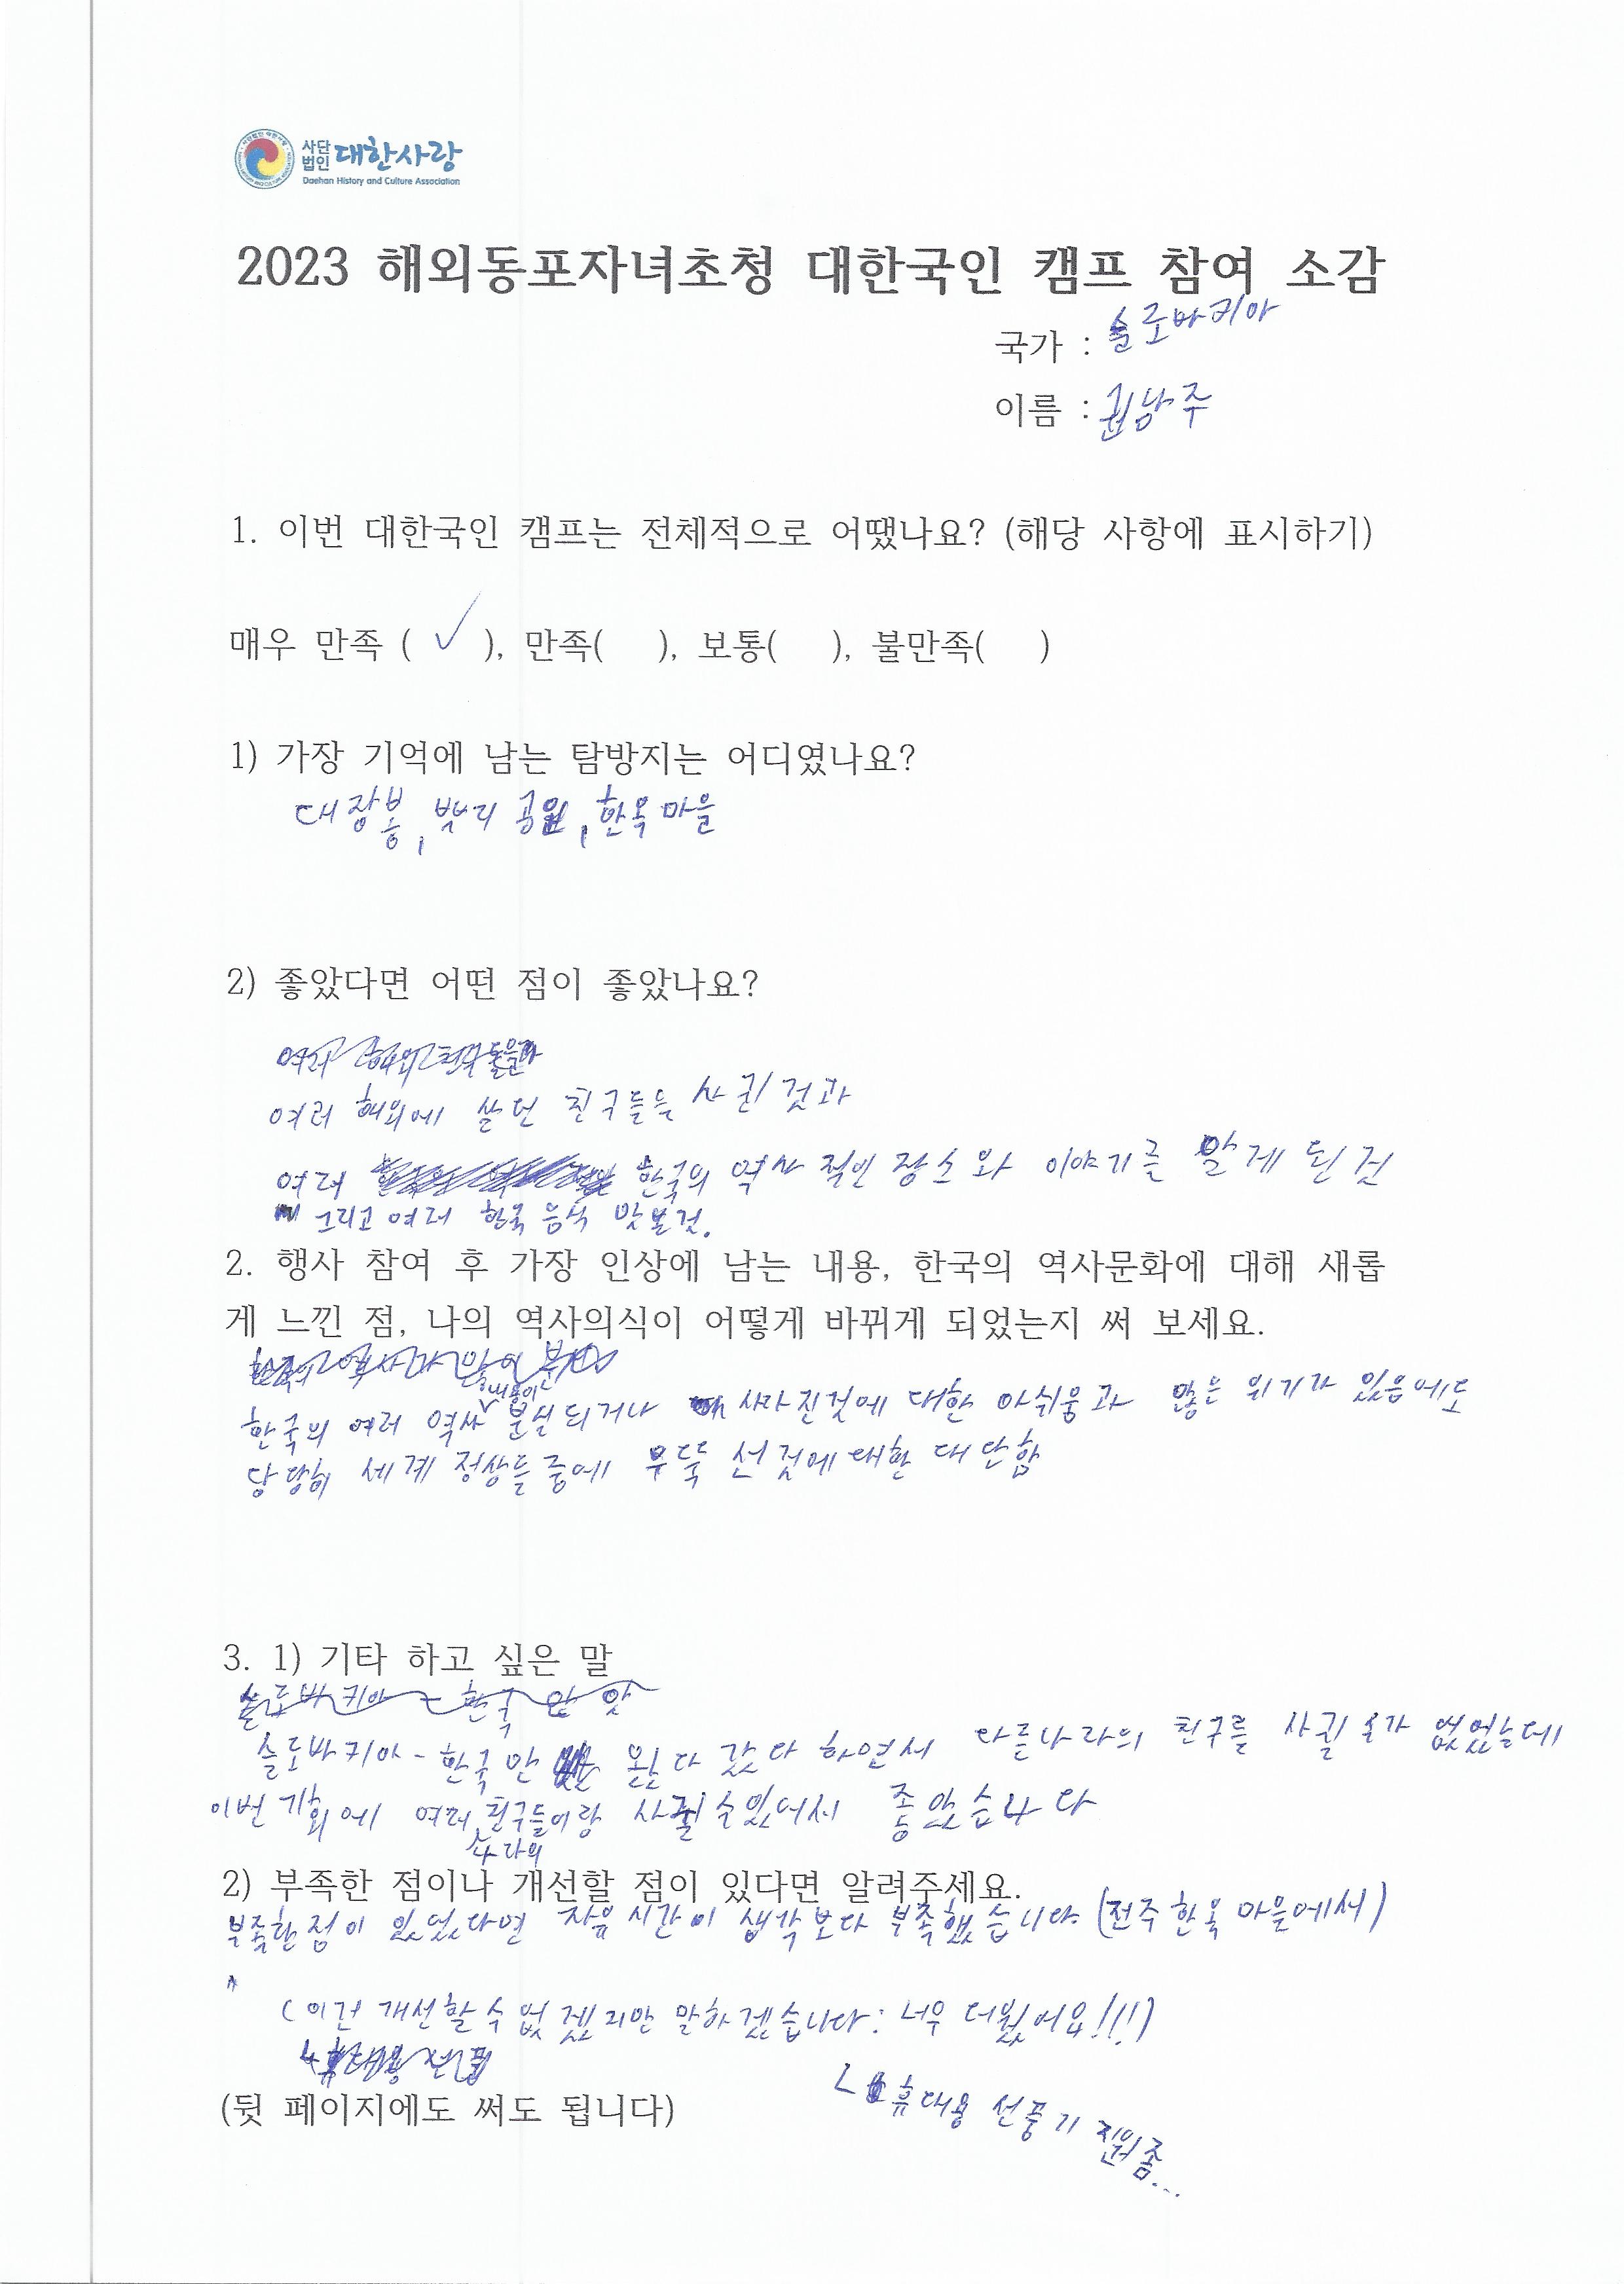 사단
법인 대한사랑
Daehan History and Culture Association
2023 해외동포자녀초청 대한국인 캠프 참여 소감
국가 : 슬로바키아
이름 : 권남주
1. 이번 대한국인 캠프는 전체적으로 어땠나요? (해당 사항에 표시하기)
매우 만족 ( ✓ ), 만족( ), 보통( ), 불만족( )
1) 가장 기억에 남는 탐방지는 어디였나요?
대장봉, 뿌리 공원, 한옥 마을
2) 좋았다면 어떤 점이 좋았나요?
여러 해외 친구들
여러 해외에 살던 친구들을 사귄 것과
여러 한국의 역사 적인 장소와 이야기를 알게 된 것
그리고 여러 한국 음식 맛본것.
2. 행사 참여 후 가장 인상에 남는 내용, 한국의 역사문화에 대해 새롭
게 느낀 점, 나의 역사의식이 어떻게 바뀌게 되었는지 써 보세요.
한국의 역사가 많이
내용이
한국의 여러 역사 분실되거나 사라진것에 대한 아쉬움과 많은 위기가 있음에도
당당히 세계 정상들 중에 우뚝 선것에 대한 대단함
3. 1) 기타 하고 싶은 말
슬로바키아 - 한국 만 왓
슬로바키아 - 한국만 왔다 갔다 하면서 다른나라의 친구를 사귈 수가 없었는데
이번 기회에 여러 친구들이랑 사귈 수 있어서 좋았습니다
나라의
2) 부족한 점이나 개선할 점이 있다면 알려주세요.
부족한 점이 있었다면 자유 시간이 생각보다 부족했습니다 (전주 한옥 마을에서)
(이건 개선할 수 없겠지만 말하겠습니다: 너무 더웠어요!!!)
ㄴ 휴대용 선풍
ㄴ 휴대용 선풍기 지원좀...
(뒷 페이지에도 써도 됩니다)